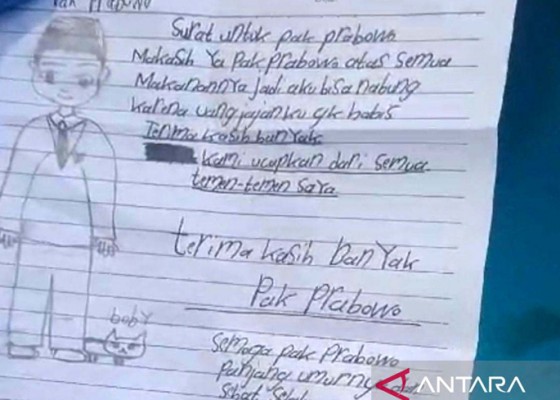 Pak Prabowo
Surat untuk pak prabowo
Makasih Ya Pak Prabowo atas semua
Makanannya jadi aku bisa nabung
karena uang jajanku gk habis
Terima kasih banyak
kami ucapkan dari semua
temen-temen saya
terima kasih banyak
Pak Prabowo
baby
Semoga pak Prabowo
Panjang umurny
Sehat
ANTARA